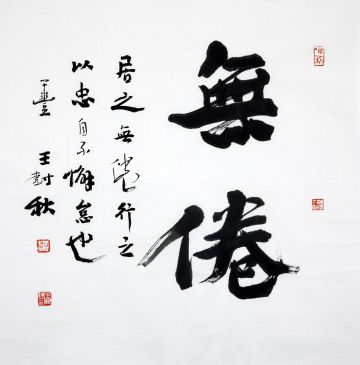 無倦
居之無倦行之
以忠自不懈怠也
一豊 王對秋